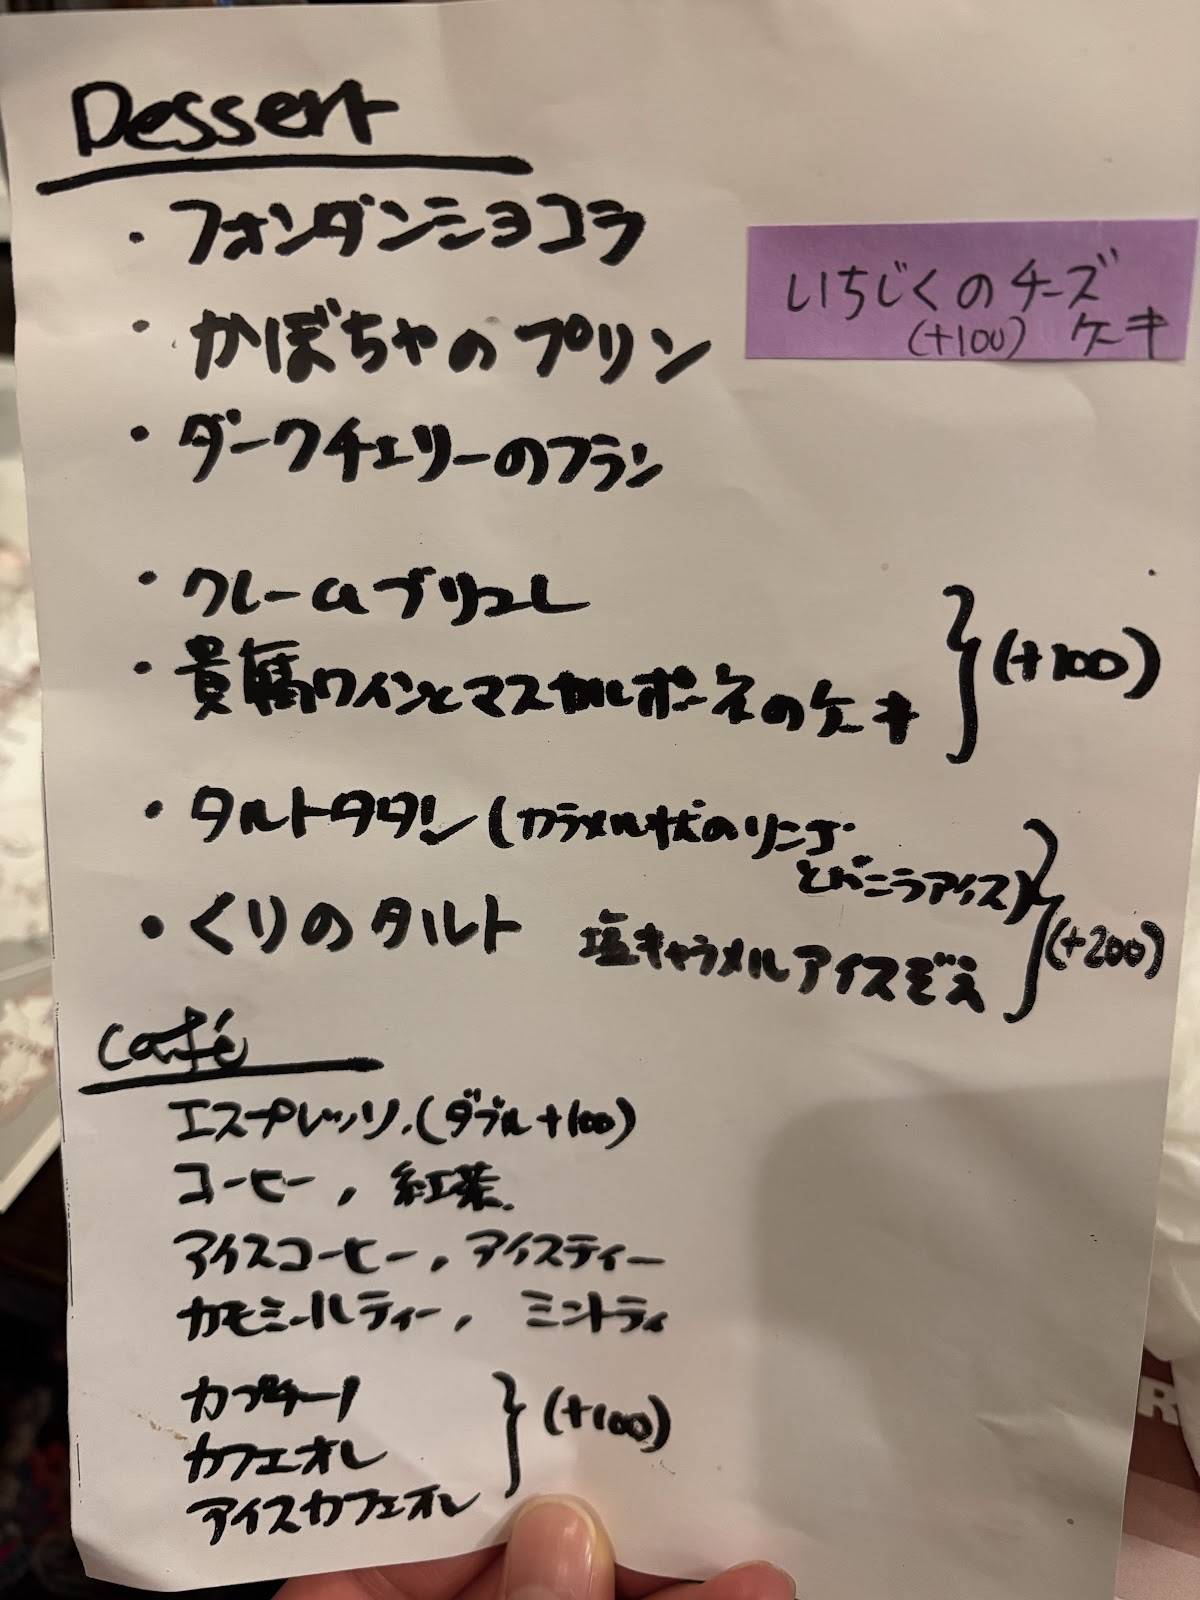 Dessert
・フォンダンショコラ
・かぼちゃのプリン
いちじくのチーズ
(+100) ケーキ
・ダークチェリーのフラン
・クレームブリュレ
・貴腐ワインとマスカルポーネのケーキ
(+100)
・タルトタタン(カラメル状のリンゴ
とバニラアイス)
・くりのタルト 塩キャラメルアイスぞえ
(+200)
Café
エスプレッソ.(ダブル+100)
コーヒー, 紅茶.
アイスコーヒー, アイスティー
カモミールティー, ミントティ
カプチーノ
カフェオレ
アイスカフェオレ
(+100)